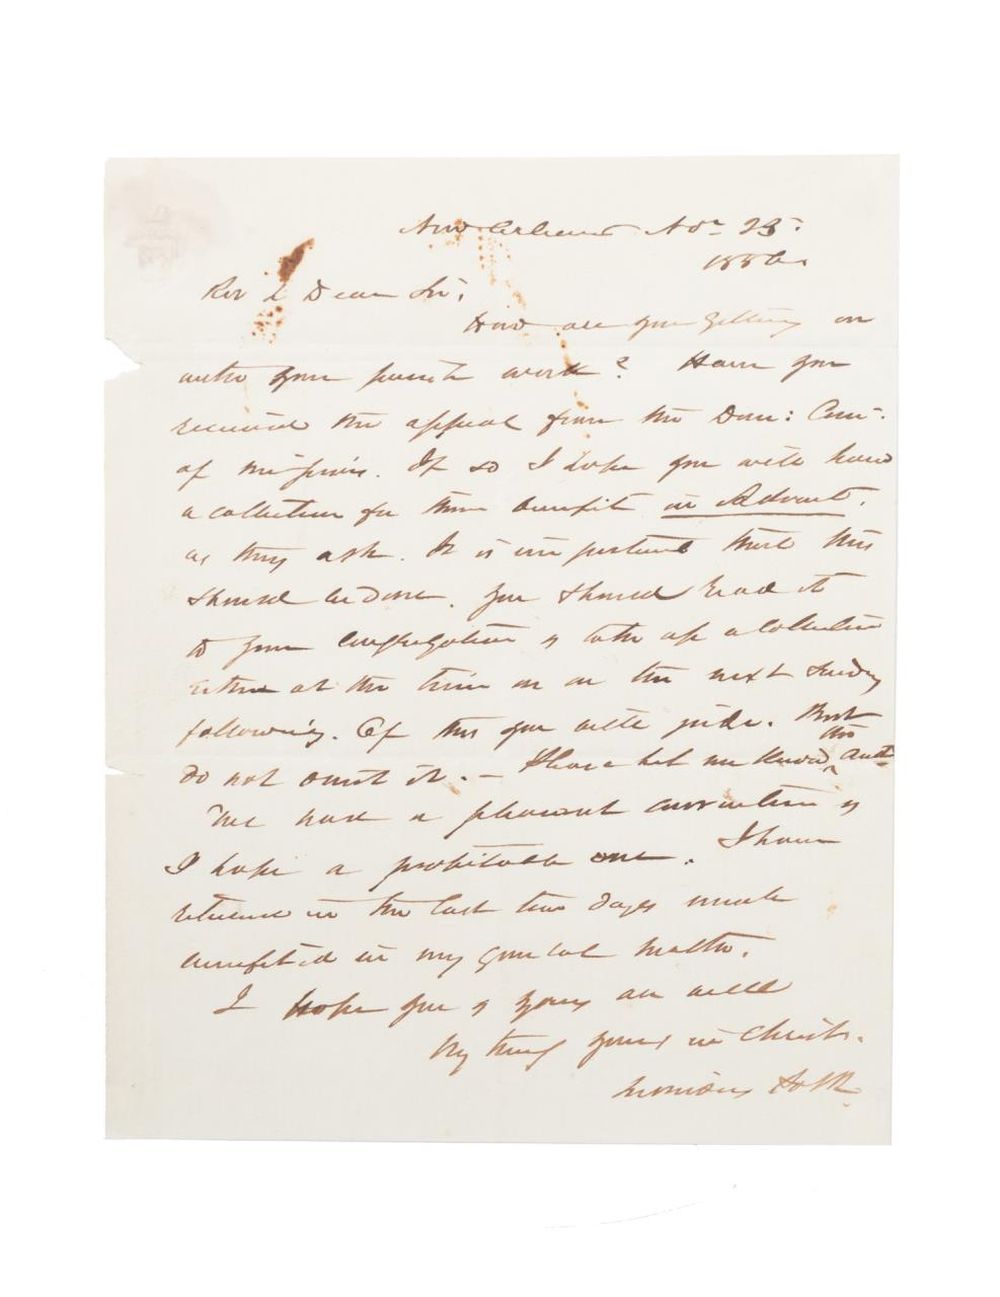 New Orleans Nov 23
1856.
Rev & Dear Sir,
How are you getting on
with your parish work? Have you
received the appeal from the Dom: Com:
of missions. If so I hope you will have
a collection for their benefit in Advent,
as they ask. It is important that this
should be done. You should read it
to your congregation & take up a collection
either at the time or on the next Sunday
following. Of this you will judge. But
do not omit it. — Please let me know this
We had a pleasant convention &
I hope a profitable one. I have
returned in the last two days much
benefited in my general health.
I hope you & yours are well
Very truly yours in Christ.
Leonidas Polk